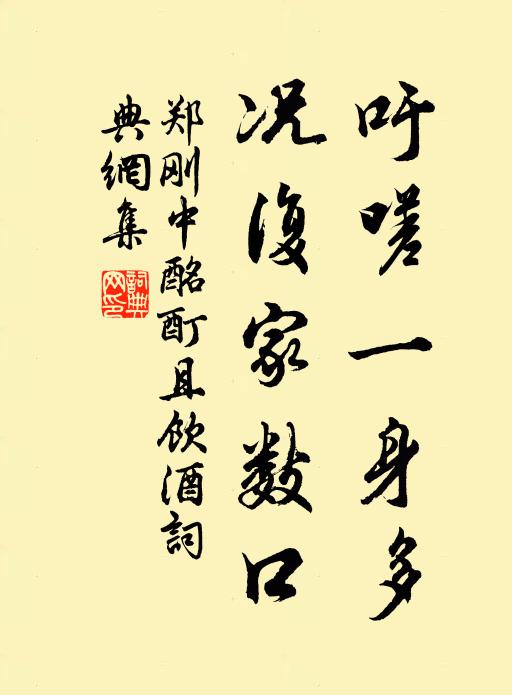 吁嗟一身多
况復家数口
郑刚中酩酊且饮酒詞
典網集
詞典网印